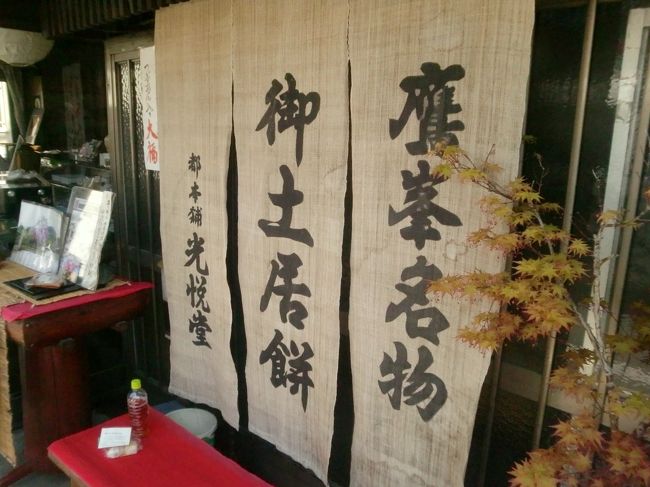 鷹峯名物
御土居餅
都本舗 光悦堂
大福